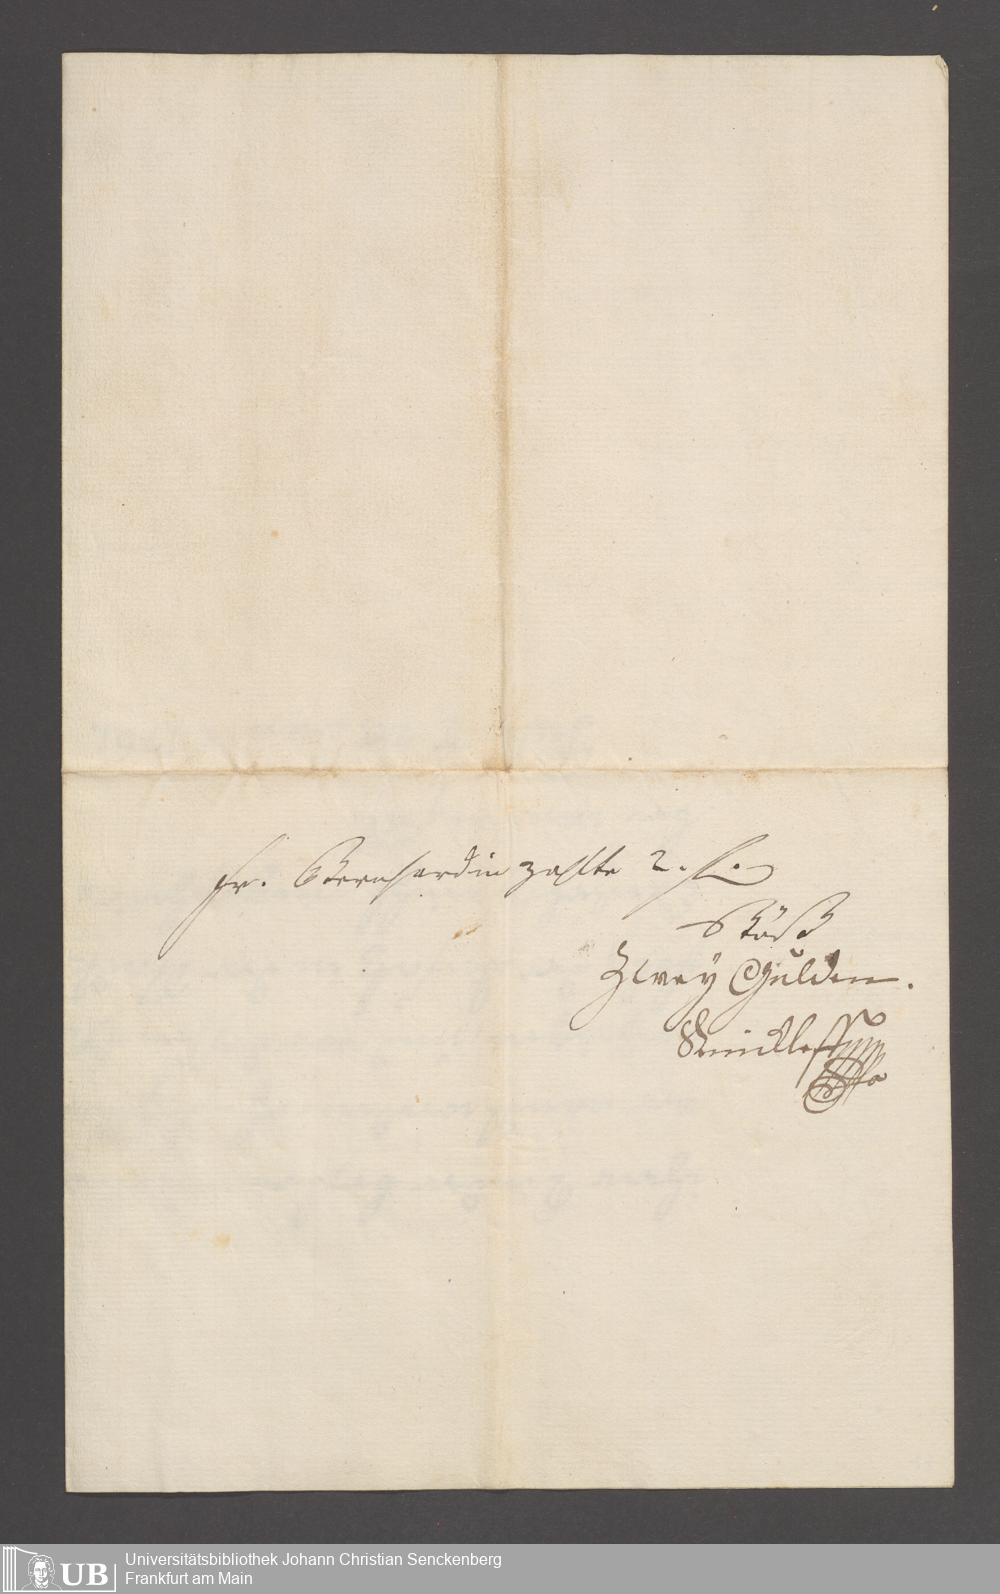 Fr. Bernhardin zahlte 2. fl.
Stöß
Zwey Gulden.
Universitätsbibliothek Johann Christian Senckenberg
Frankfurt am Main
UB